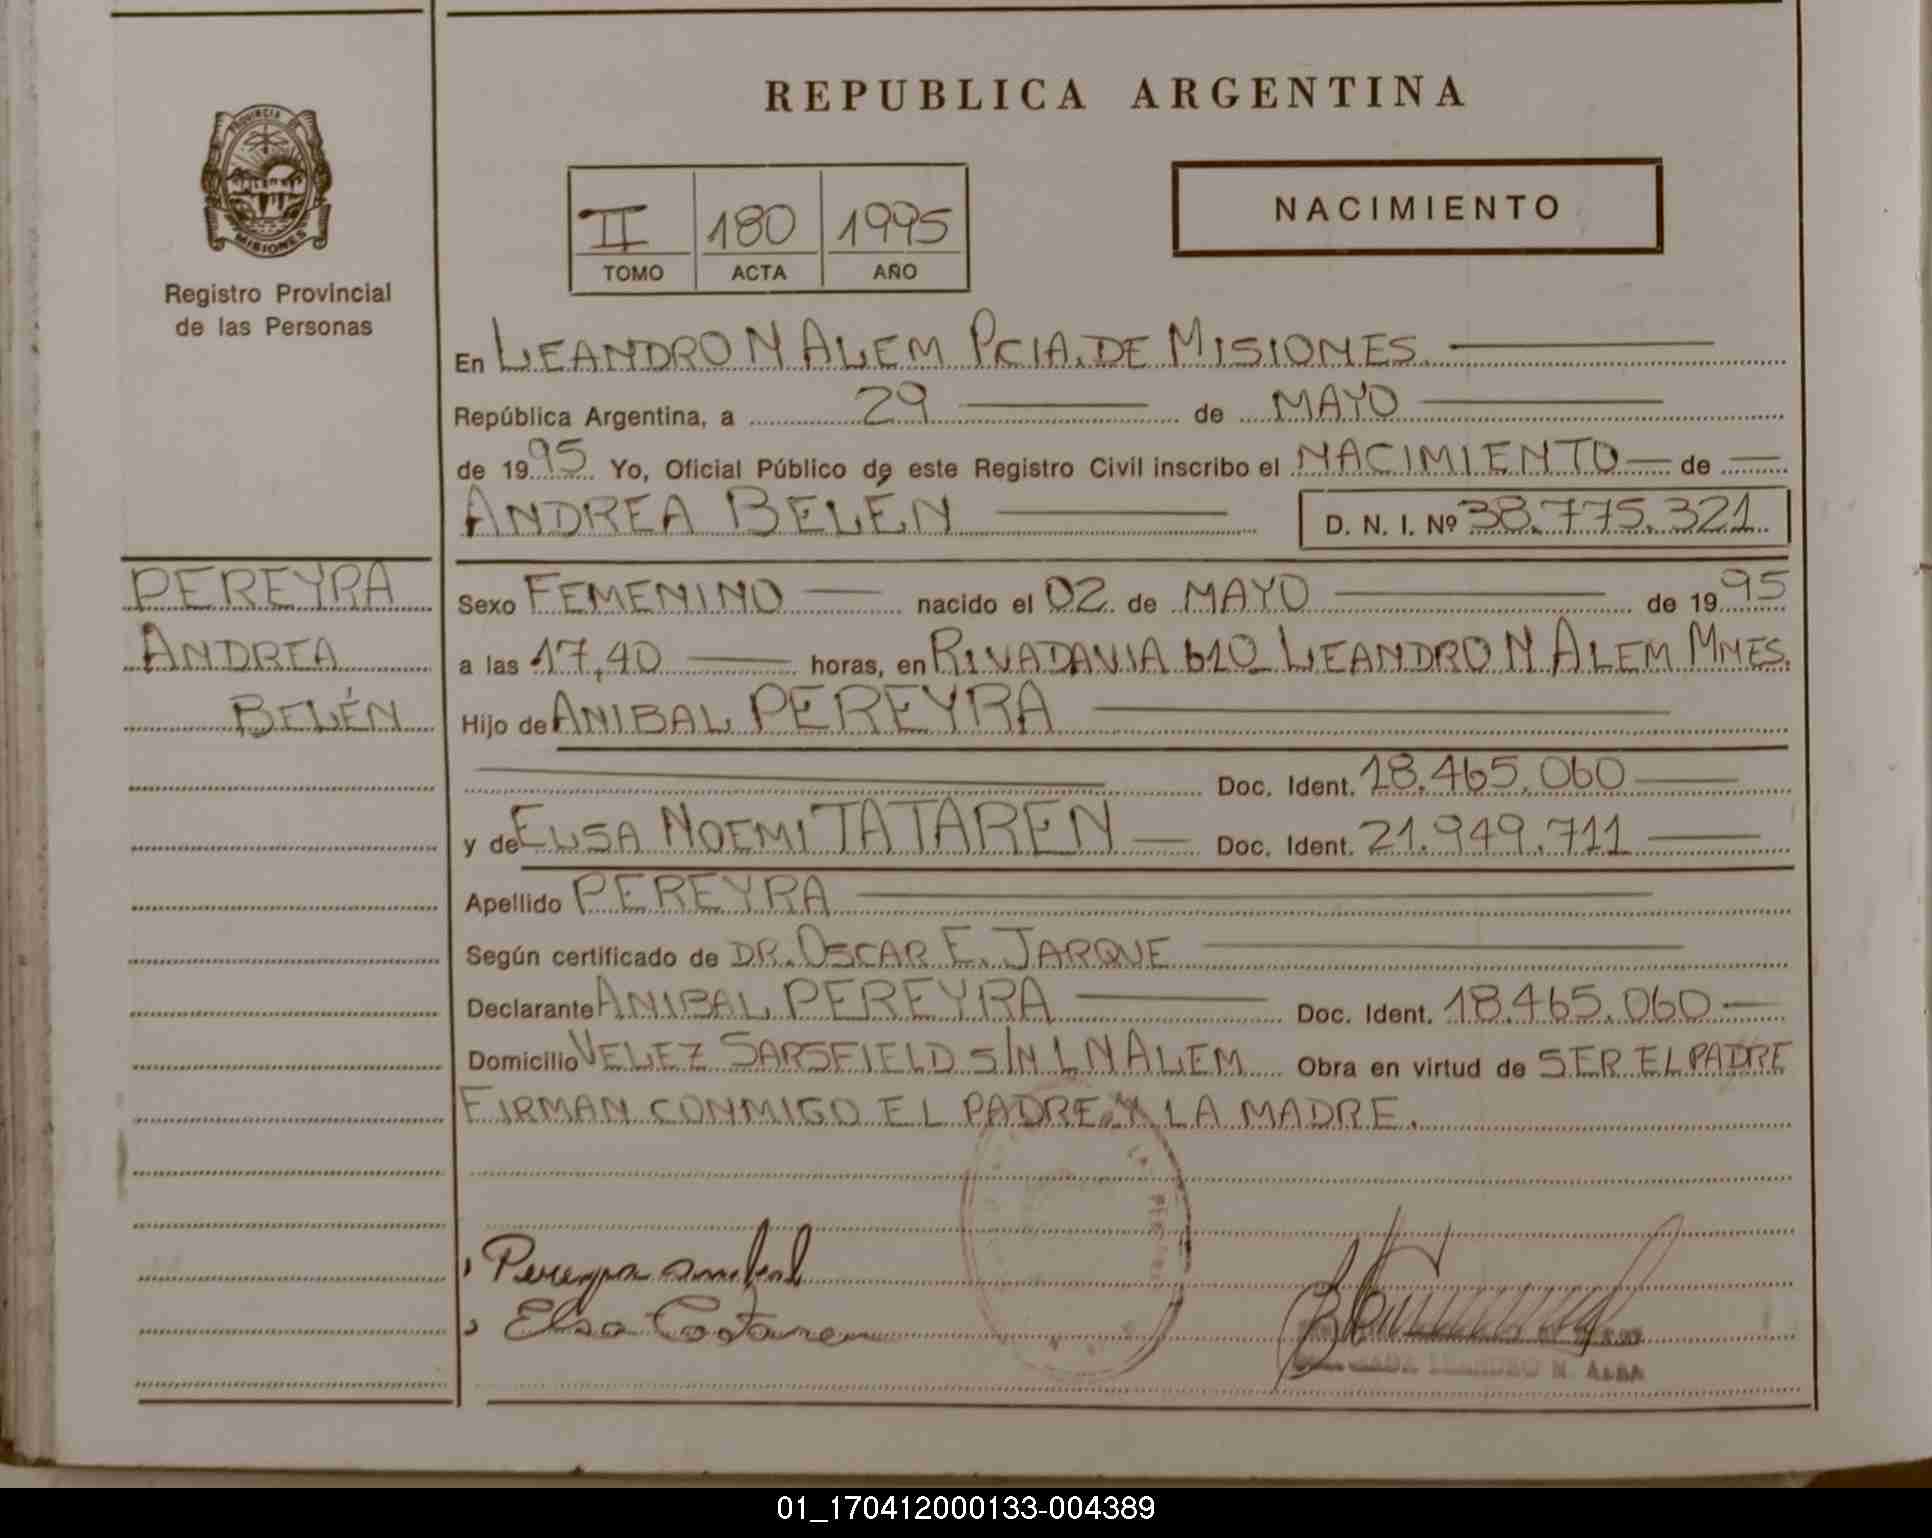 REPUBLICA ARGENTINA
PROVINCIA DE
MISIONES
Registro Provincial
de las Personas
II 180 1995
TOMO ACTA AÑO
NACIMIENTO
En LEANDRO N ALEM PCIA. DE MISIONES.
República Argentina, a 29 de MAYO
de 1995 Yo, Oficial Público de este Registro Civil inscribo el NACIMIENTO de
ANDREA BELÉN D. N. I. Nº 38.775.321
PEREYRA
ANDREA
BELÉN
Sexo FEMENINO nacido el 02 de MAYO de 1995
a las 17,40 horas, en RIVADAVIA 610 LEANDRO N ALEM MNES.
Hijo de ANIBAL PEREYRA
Doc. Ident. 18.465.060
y de ELSA NOEMI TATAREN Doc. Ident. 21.949.711
Apellido PEREYRA
Según certificado de DR. OSCAR E. JARQUE
Declarante ANIBAL PEREYRA Doc. Ident. 18.465.060
Domicilio VELEZ SARSFIELD S/N L N ALEM Obra en virtud de SER EL PADRE
FIRMAN CONMIGO EL PADRE Y LA MADRE.
Pereyra Anibal
Elsa Tataren
LEANDRO N. ALEM
01_170412000133-004389